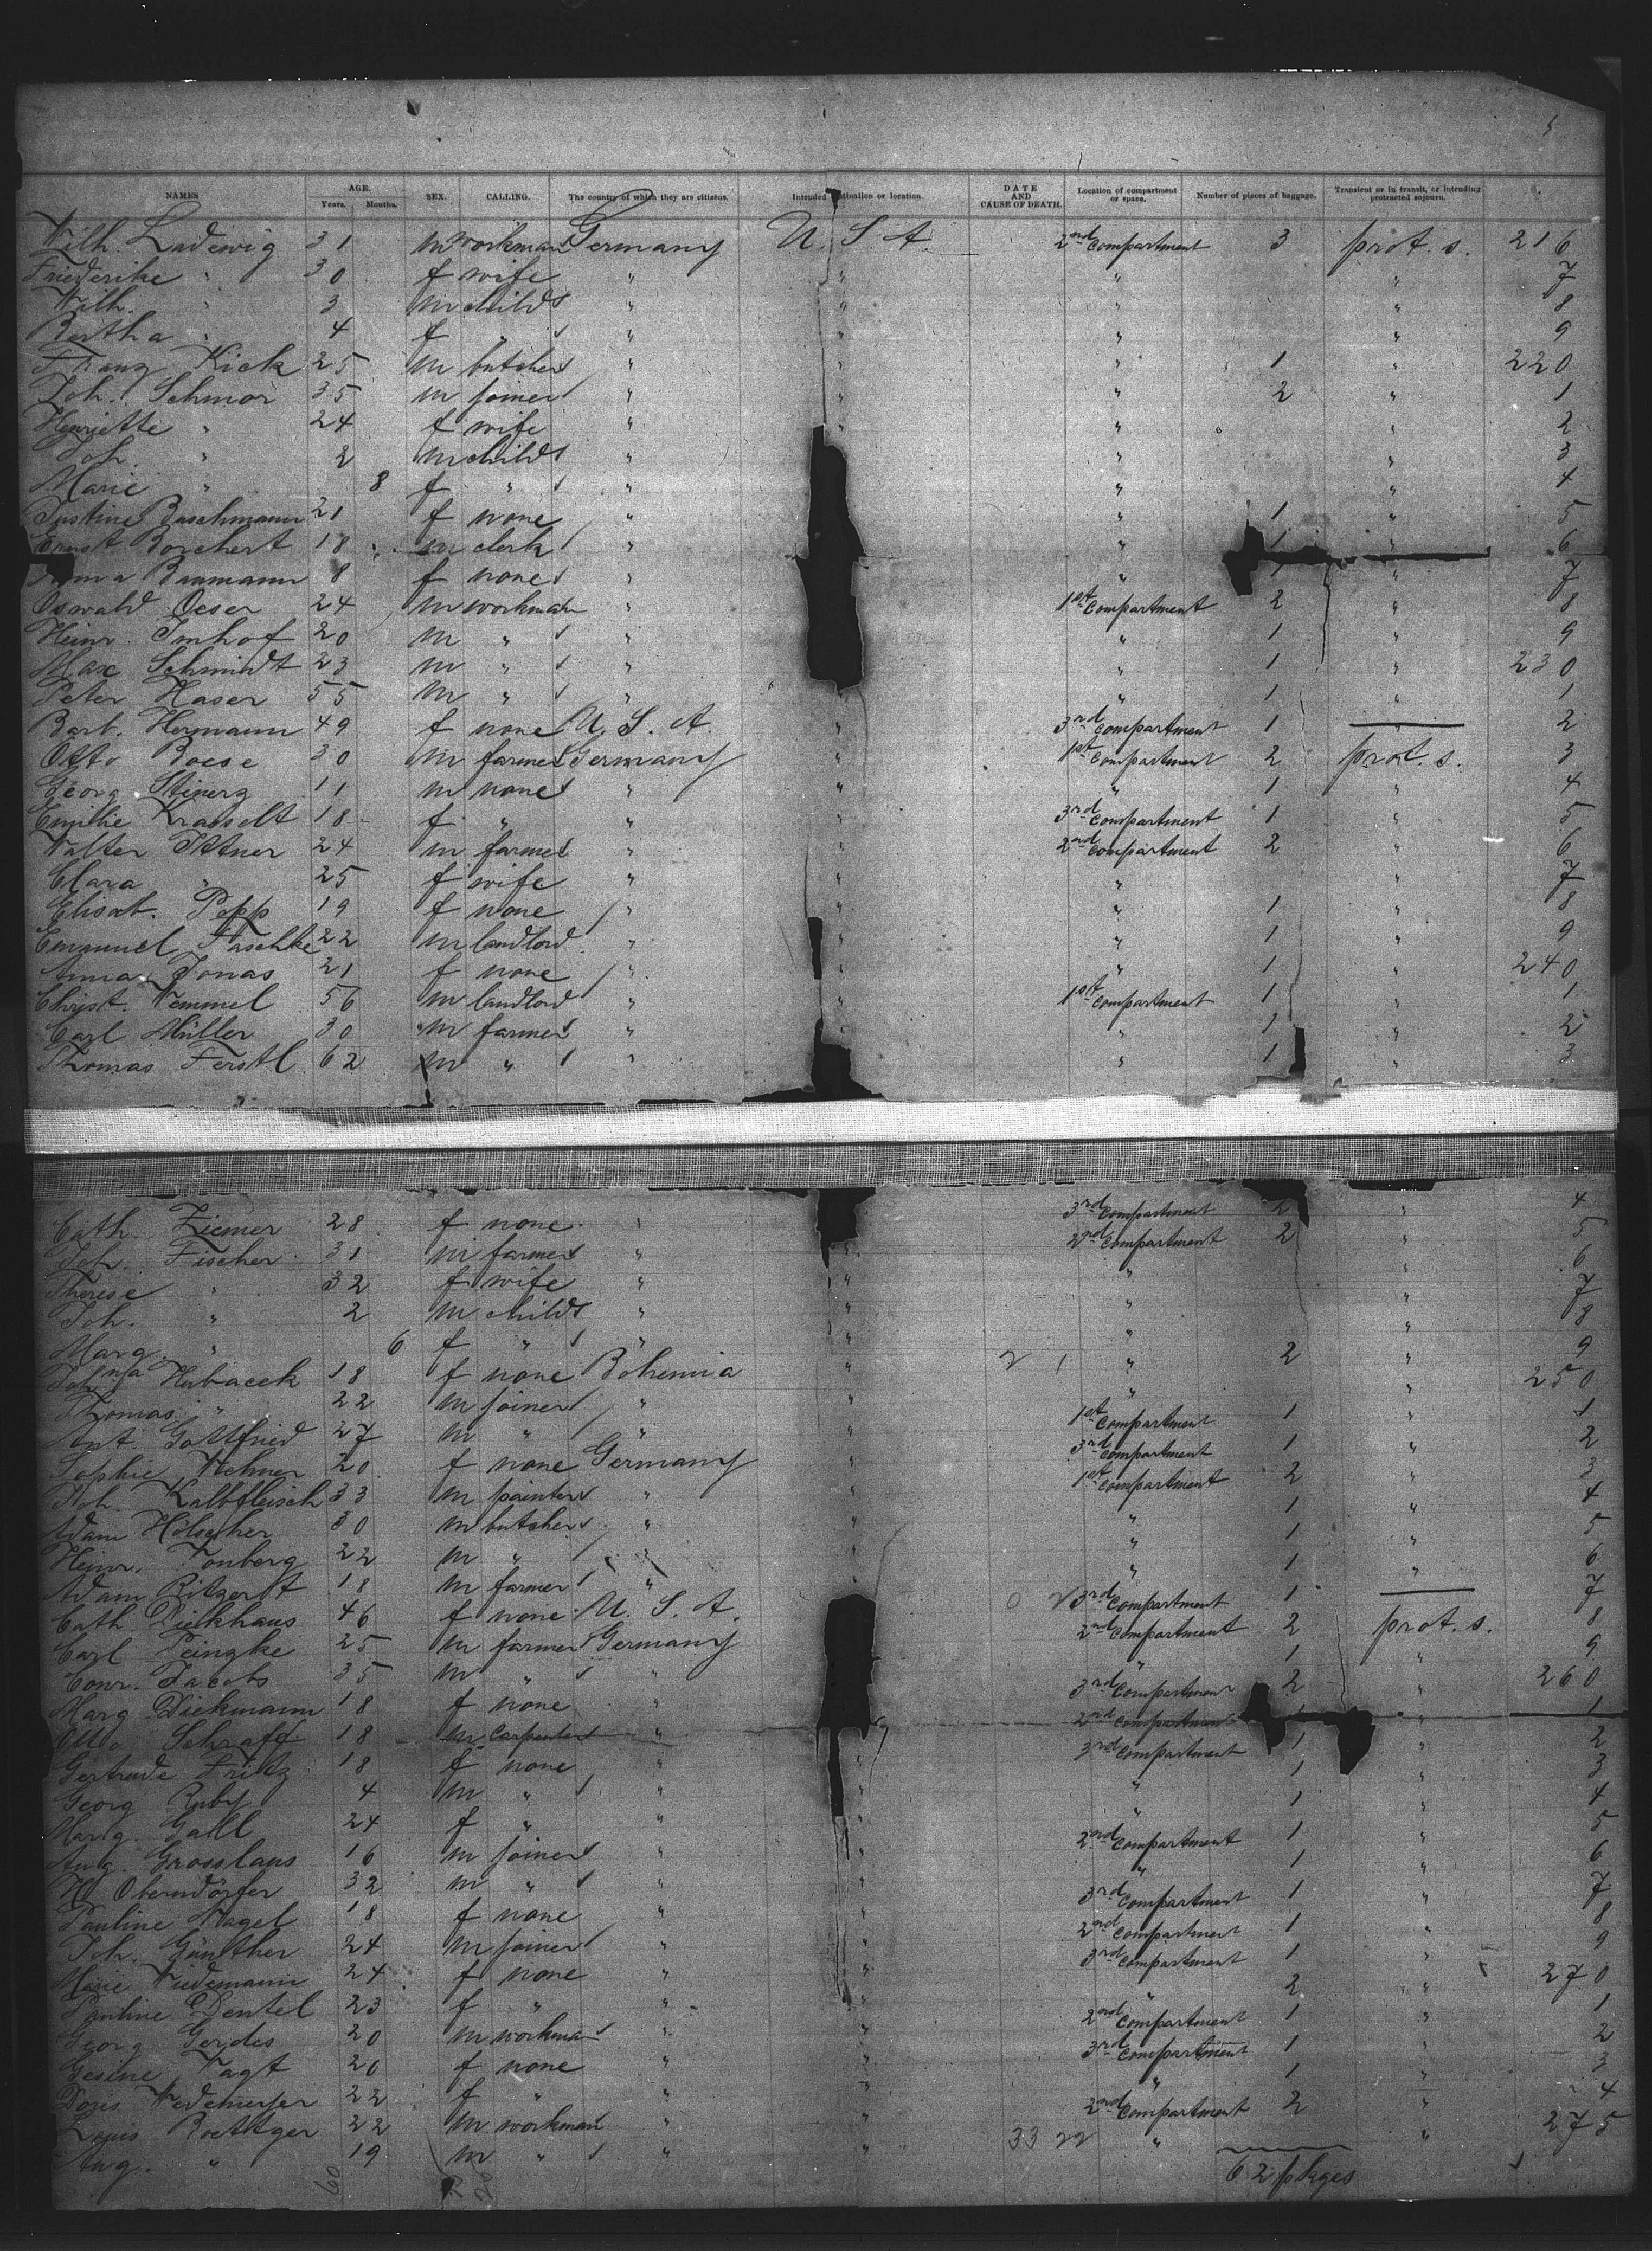 NAMES AGE. Years. Months. SEX. CALLING. The country of which they are citizens. Intended destination or location. DATE AND CAUSE OF DEATH. Location of compartment or space. Number of pieces of baggage. Transient or in transit, or intending protracted sojourn.
Wilh. Ladewig 31 m workman Germany U. S. A. 2nd Compartment 3 prot. s. 216
Friederike " 30 f wife " " " " 7
Wilh. " 3 m child " " " " 8
Bertha " 4 f " " " " " 9
Franz Kick 25 m butcher " " " 1 " 220
Joh. Schmor 35 m joiner " " " 2 " 1
Henriette " 24 f wife " " " " 2
Joh. " 2 m child " " " 3
Marie " 8 f " " " " 4
Justine Buschmann 21 f none " " 1 " 5
Ernst Borchert 18 m clerk " " 1 " 6
Baumann 8 f none " " 1 " 7
Oswald Oeser 24 m workman " 1st Compartment 2 " 8
Heinr. Imhof 20 m " " " 1 " 9
Max Schmidt 23 m " " " 1 " 230
Peter Haser 55 m " " " 1 " 1
Barb. Hermann 49 f none U. S. A. " 3rd Compartment 1 " 2
Otto Boese 30 m farmer Germany " 1st Compartment 2 prot. s. 3
Georg Stinerz 11 m none " " " 1 " 4
Emilie Krasselt 18 f " " " 3rd Compartment 1 " 5
Walter Ittner 24 m farmer " " 2nd Compartment 2 " 6
Clara " 25 f wife " " " " 7
Elisab. Popp 19 f none " " " 1 " 8
Emanuel Faschke 22 m landlord " " " 1 " 9
Anna Jonas 21 f none " " " 1 " 240
Christ. Wemmel 56 m landlord " " 1st Compartment 1 " 1
Carl Müller 30 m farmer " " " 1 " 2
Thomas Ferstl 62 m " " " 1 " 3
Cath. Ziemer 28 f none " 3rd Compartment 2 " 4
Joh. Fischer 31 m farmer " " 2nd Compartment 2 " 5
Therese " 32 f wife " " " " 6
Joh. " 2 m child " " " " 7
Marg. " 6 f " " " " " 8
Johna Habacek 18 f none Bohemia " 2 1 " 2 " 9
Thomas " 22 m joiner " " " " 250
Ant. Gottfried 27 m " " " 1st Compartment 1 " 1
Sophie Wehner 20 f none Germany " 3rd Compartment 1 " 2
Joh. Kalbfleisch 33 m painter " " 1st Compartment 2 " 3
Adam Hölscher 30 m butcher " " " 1 " 4
Heinr. Tonberg 22 m " " " " 1 " 5
Adam Ritzert 18 m farmer " " " 1 " 6
Cath. Dielkhaus 46 f none U. S. A. 0 2 3rd Compartment 1 7
Carl Peingke 25 m farmer Germany 2nd Compartment 2 prot. s. 8
Conr. Jacobs 35 m " " " 1 " 9
Marg Dickmann 18 f none " 3rd Compartment 2 " 260
Otto Schraff 18 m Carpenter " 2nd Compartment 1 " 1
Gertrude Fritz 18 f none " " 3rd Compartment 1 " 2
Georg Ruby 4 m " " " " 1 " 3
Marg. Gall 24 f " " " " 1 " 4
Aug. Grosslaus 16 m joiner " " 2nd Compartment 1 " 5
W. Oberndörfer 32 m " " " " 1 " 6
Pauline Nagel 18 f none " " 3rd Compartment 1 " 7
Joh. Günther 24 m joiner " " 2nd Compartment 1 " 8
Marie Wiedemann 24 f none " " 3rd Compartment 1 " 9
Pauline Dentel 23 f " " " " 2 " 270
Georg Gerdes 20 m workman " " 2nd Compartment 1 " 1
Gesine Vagt 20 f none " " 3rd Compartment 1 " 2
Doris Wedemeyer 22 f " " " " 1 " 3
Louis Roettger 22 m workman " " 2nd Compartment 2 " 4
Aug. " 19 m " " " 33 22 " " 275
62 pkges